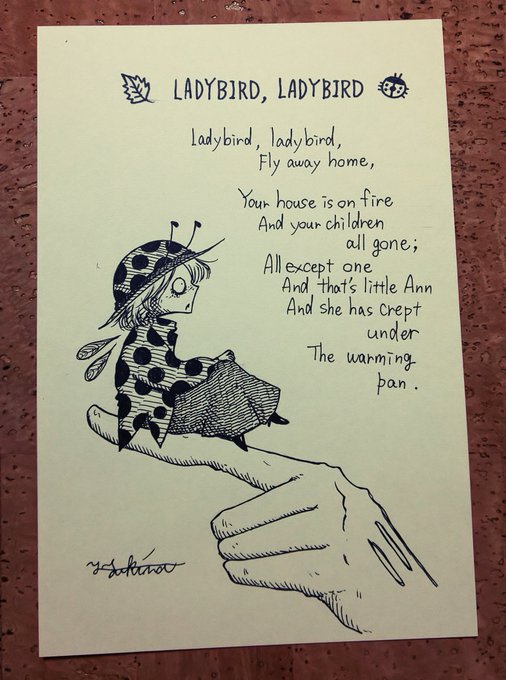 LADYBIRD, LADYBIRD
Ladybird, ladybird,
Fly away home,
Your house is on fire
And your children
all gone;
All except one
And that's little Ann
And she has crept
under
The warming
pan.